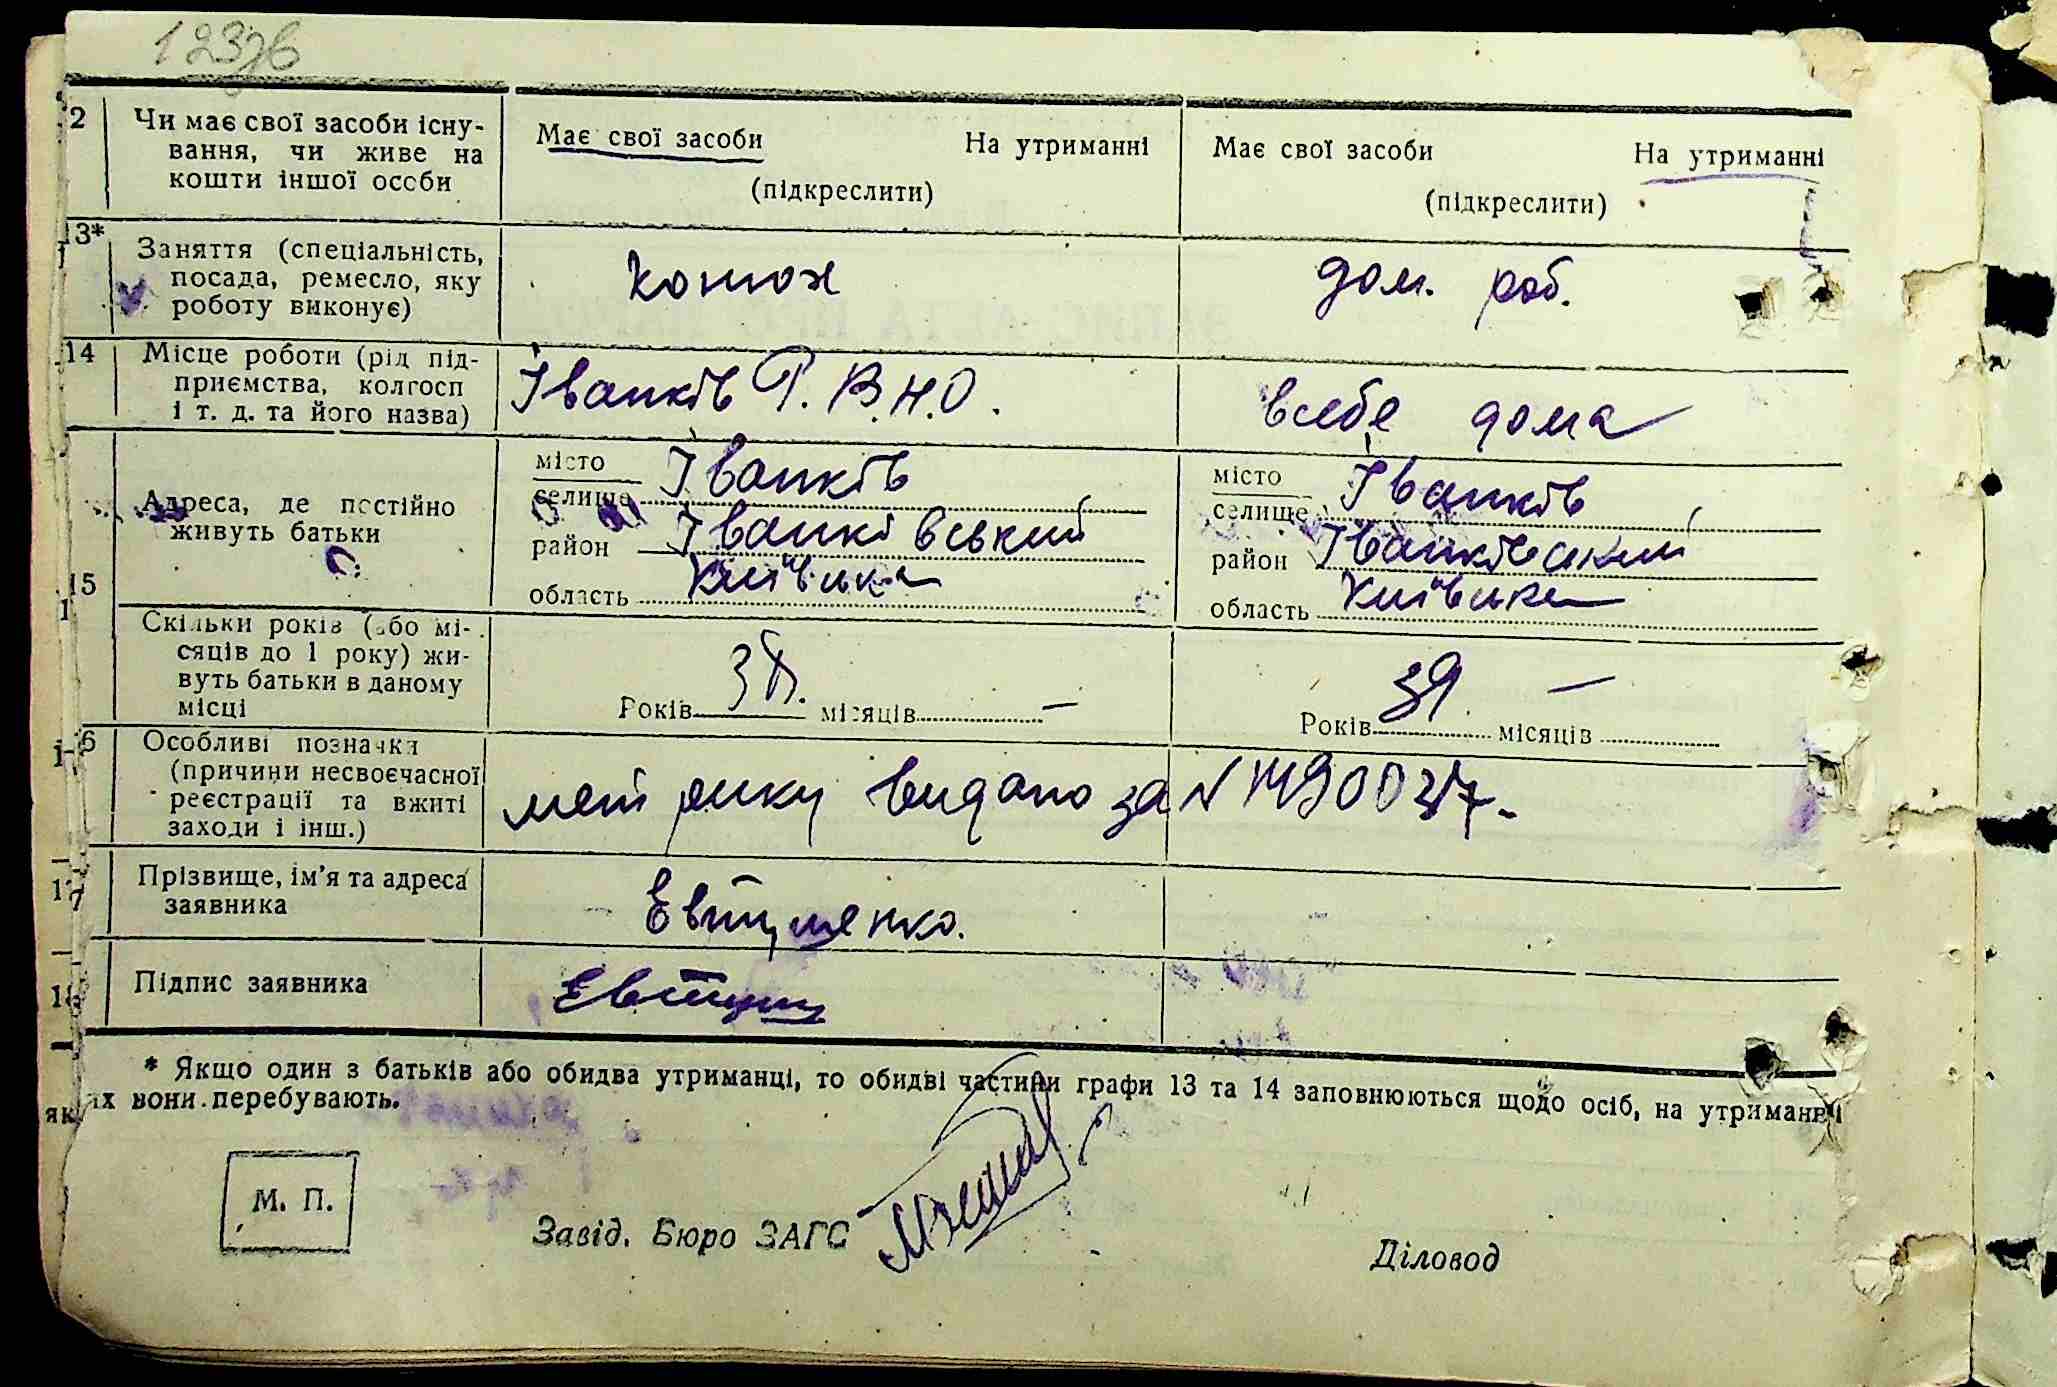 2 Чи має свої засоби існу-
вання, чи живе на
кошти іншої особи
Має свої засоби На утриманні
(підкреслити)
Має свої засоби На утриманні
(підкреслити)
13* Заняття (спеціальність,
посада, ремесло, яку
роботу виконує)
Конюх
дом. роб.
14 Місце роботи (рід під-
приємства, колгосп
і т. д. та його назва)
Іванків Р.В.Н.О.
в себе дома
15 Адреса, де постійно
живуть батьки
місто
селище Іванків
район Іванківський
область Київська
місто
селище Іванків
район Іванківський
область Київська
Скільки років (або мі-
сяців до 1 року) жи-
вуть батьки в даному
місці
Років місяців —
Років 39 місяців —
16 Особливі позначки
(причини несвоєчасної
реєстрації та вжиті
заходи і інш.)
метрику видано за N
17 Прізвище, ім'я та адреса
заявника
Евтушенко.
18 Підпис заявника
* Якщо один з батьків або обидва утриманці, то обидві частини графи 13 та 14 заповнюються щодо осіб, на утриманні
яких вони перебувають.
М. П.
Завід. Бюро ЗАГС
Діловод